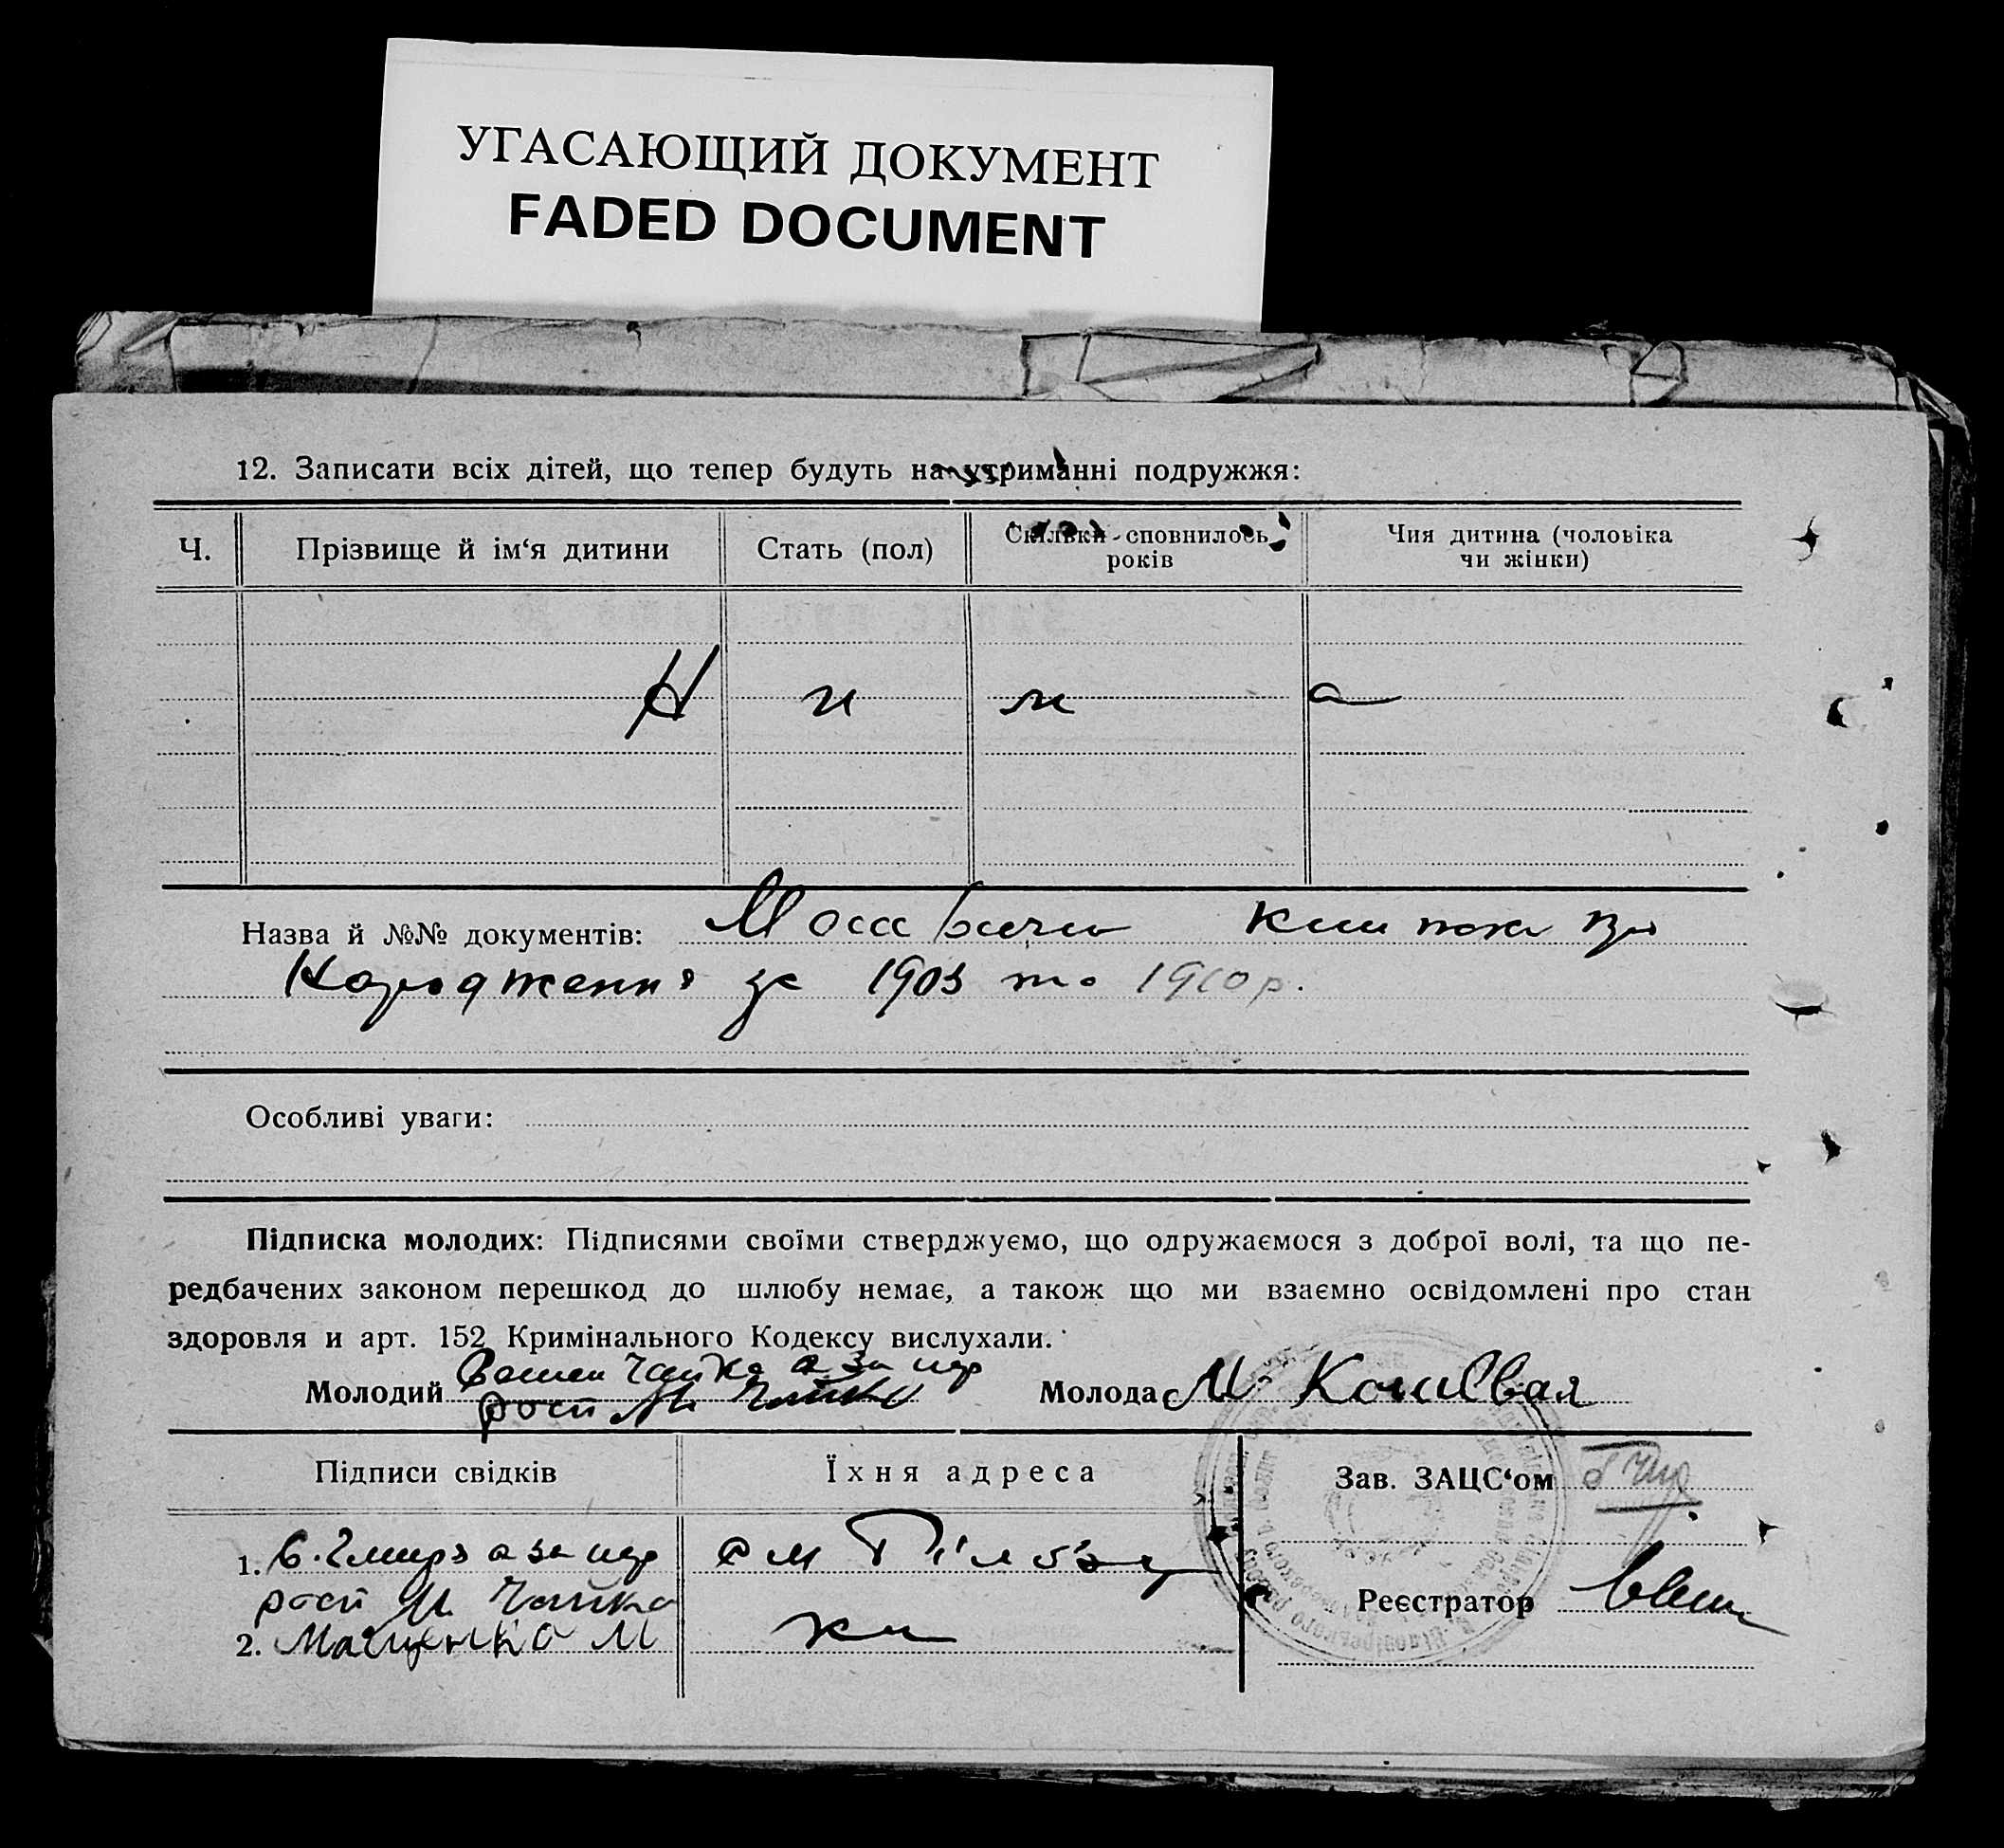 УГАСАЮЩИЙ ДОКУМЕНТ
FADED DOCUMENT
12. Записати всіх дітей, що тепер будуть на утриманні подружжя:
Ч.
Прізвище й ім‘я дитини
Стать (пол)
Скільки сповнилось
років
Чия дитина (чоловіка
чи жінки)
Н и м а
Назва й №№ документів: книжка про
Народження за 1903 та 1910 р.
Особливі уваги:
Підписка молодих: Підписями своїми стверджуємо, що одружаємося з доброї волі, та що пе-
редбачених законом перешкод до шлюбу немає, а також що ми взаємно освідомлені про стан
здоровля и арт. 152 Кримінального Кодексу вислухали.
Чайка а за нар
Молодий рост М Чайка
Молода М.
Підписи свідків
Їхня адреса
Зав. ЗАЦС‘ом
1. а за нар
рост М. Чайка
2. М
Реєстратор